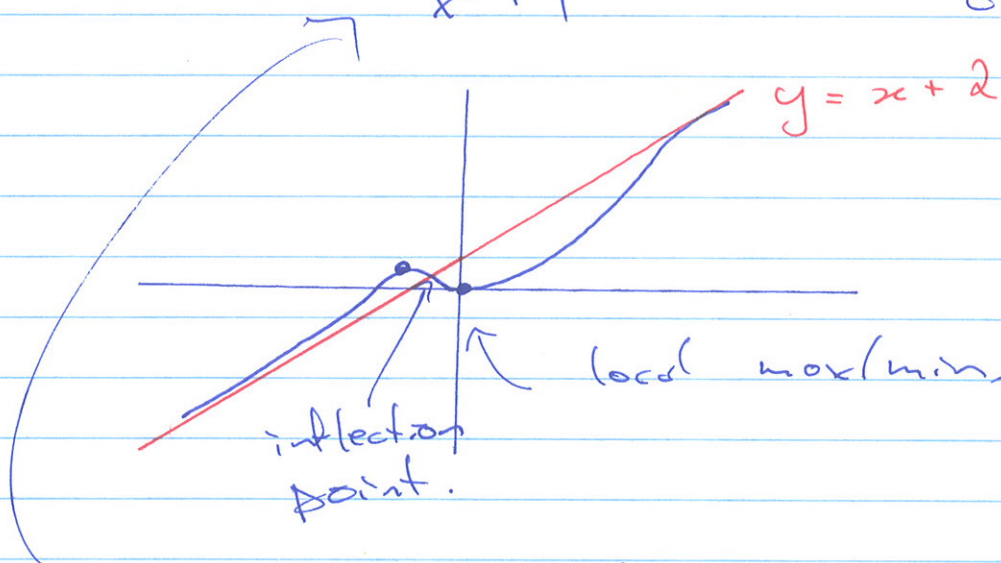 y = x + 2
local max/min.
inflection
point.